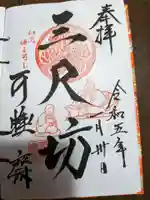 奉拝
令和五年
一月卅日
三尺坊
可睡斎